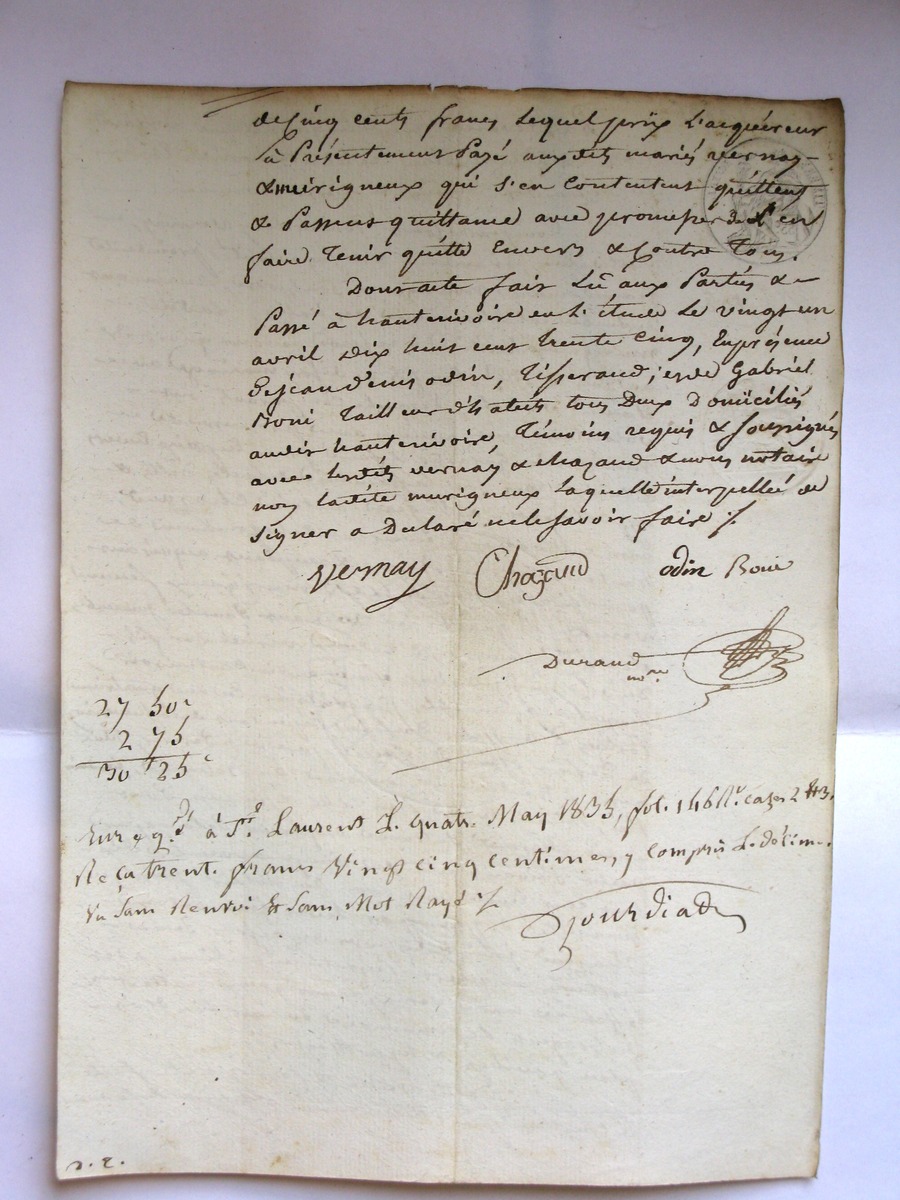 de Cinq cents francs lequel prix l'acquéreur
a Présentement Payé aux dits mariés vernay
& murigneux qui s'en Contentent quittent
& Passent quittance avec promesse de l'en
faire Tenir quitte Envers & Contre Tous.
Dont acte fait Lû aux Parties &
Passé à hauterivoire en l'étude Le vingt un
avril Dix huit cent trente Cinq, En présence
de jean denis odin, Tisserand, & de Gabriel
Boni Tailleur d'habits tous Deux Domiciliés
audit hauterivoire, Témoins requis & soussignés
avec lesdits vernay & chazaud & nous notaire
non ladite murigneux laquelle interpellée de
signer a Déclaré ne le savoir faire ./.
Vernay Chazaud odin Boni
Durand
no.re
27 50c
2 75
30 25c
Enregd. à St. Laurent Le quatre May 1835, fol. 146 Ro. cases 2 & 3.
Reçu trente francs Vingt cinq centimes, y compris Le décime.
Vu Sans Renvoi & Sans Mot Rayé ./.